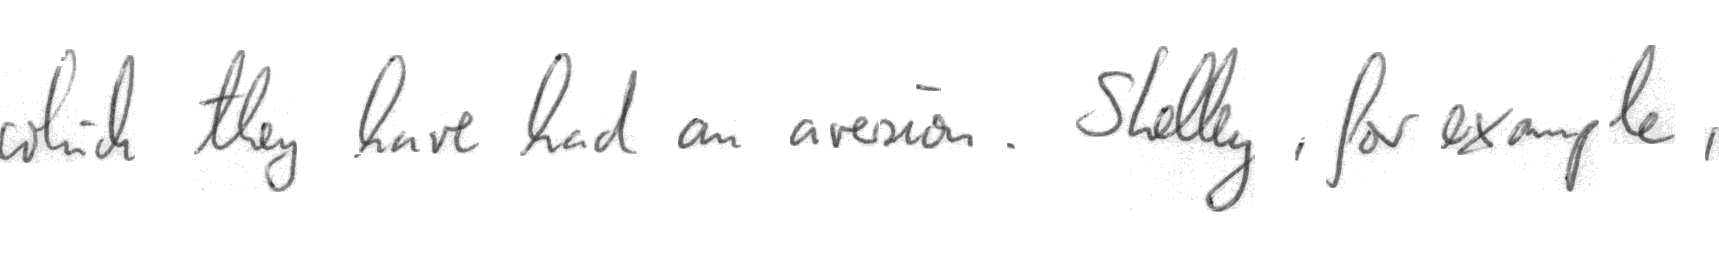 which they have had an aversion. Shelley, for example,